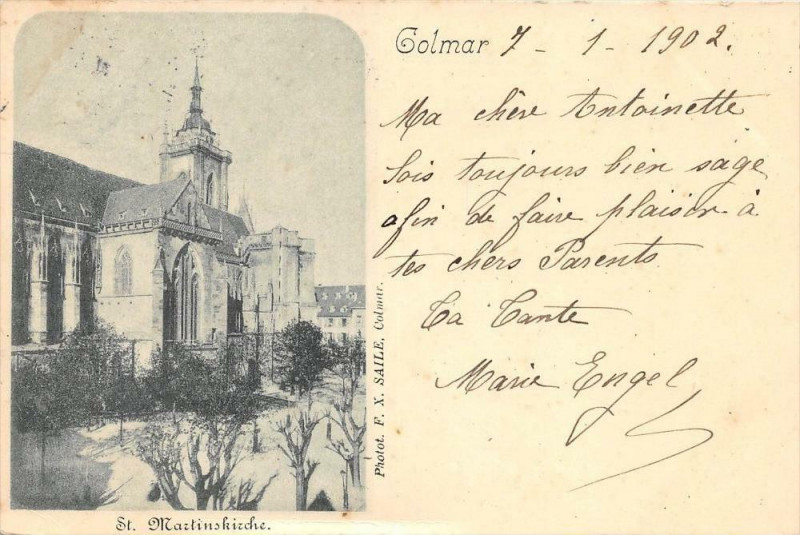 Colmar 7 - 1 - 1902.
Ma chère Antoinette
Sois toujours bien sage
afin de faire plaisir à
tes chers Parents
Ta Tante
Marie Engel
Photot. F. X. SAILE, Colmar.
St. Martinskirche.